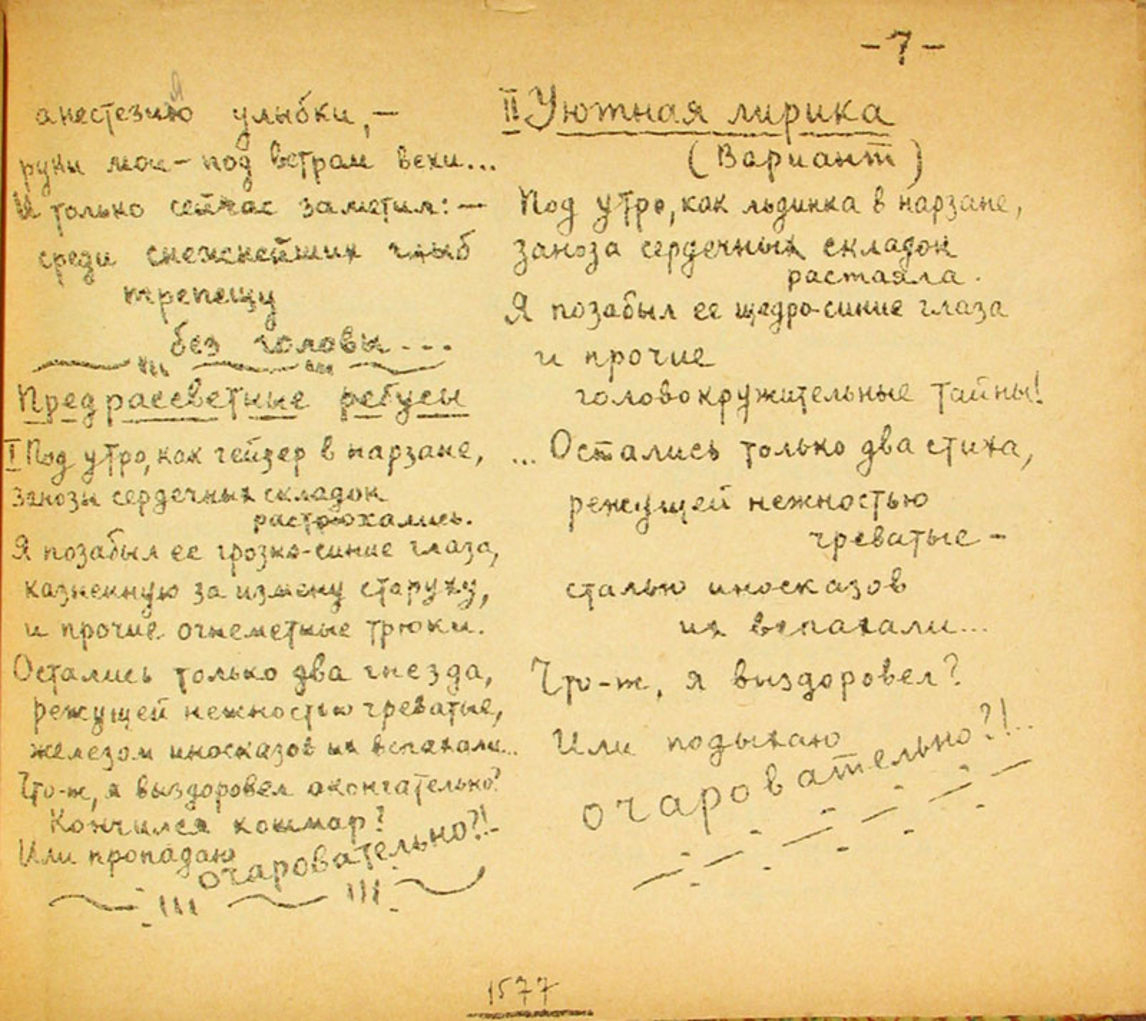 -7-
анестезия улыбки,-
руки мои - под ветрам вехи...
И только сейчас заметил:-
среди снежнейших глыб
трепещу
без головы...
Предрассветные ребусы
I Под утро, как гейзер в нарзане,
занозы сердечных складок
растрюхались.
Я позабыл ее грозно-синие глаза,
казненную за измену старуху,
и прочие огнеметные трюки.
Остались только два гнезда,
режущей нежностью греватые,
железом иносказов их вспахали...
Что-ж, я выздоровел окончательно?
Кончился кошмар?
Или пропадаю
очаровательно?!..
II Уютная лирика
(Вариант)
Под утро, как льдинка в нарзане,
заноза сердечных складок
растаяла.
Я позабыл ее щедро-синие глаза
и прочие
головокружительные тайны!
... Остались только два стиха,
режущей нежностью
греватые -
сталью иносказов
их вспахали...
Что-ж, я выздоровел?
Или подыхаю
очаровательно?!..
1577